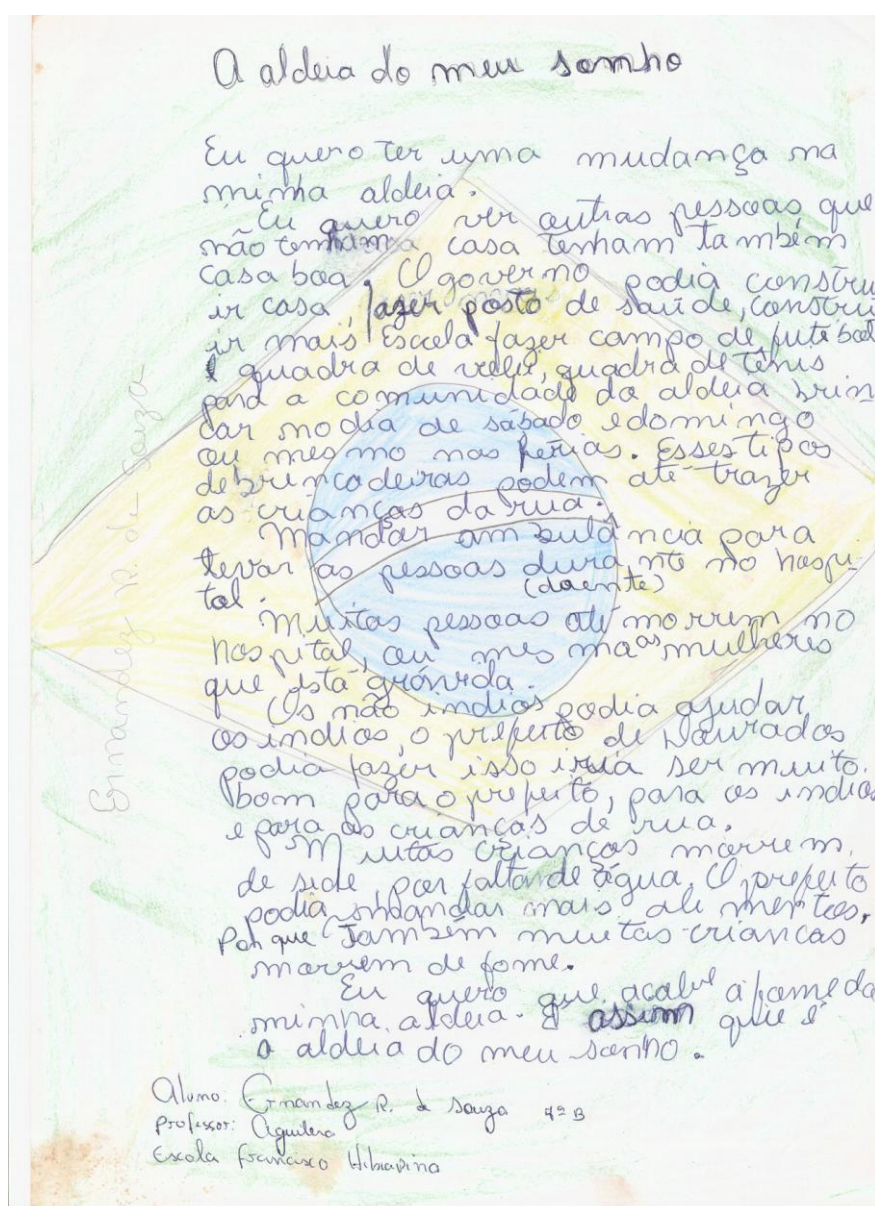 A aldeia do meu sonho
Eu quero ter uma mudança na
minha aldeia.
Eu quero ver outras pessoas que
não tenham casa tenham também
casa boa. O governo podia constru
ir casa, fazer posto de saúde, constru
ir mais Escola fazer campo de futebol
e quadra de volei, quadra de tênis
para a comunidade da aldeia brin
car no dia de sábado e domingo
ou mesmo nas férias. Esses tipos
de brincadeiras podem até trazer
as crianças da rua.
Mandar ambulância para
levar as pessoas durante no hospi-
(doente)
tal.
Muitas pessoas até morrem no
hospital, ou mesmo as mulheres
que está grávida.
Os não índios podia ajudar
os índios, o prefeito de Dourados
podia fazer isso iria ser muito
bom para o prefeito, para os índios
e para as crianças de rua.
Muitas crianças morrem
de sede, por falta de água. O prefeito
podia mandar mais alimentos,
Porque Também muitas crianças
morrem de fome.
Eu quero que acabe a fome da
minha aldeia. É assim que é
a aldeia do meu sonho.
Aluno: Ernandez R. de Souza 4ª B
Professor: Aguilera
Escola Francisco
Ernandez R. de Souza